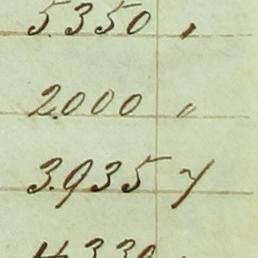 5.350 "
2.000 "
3.935 7
4.330